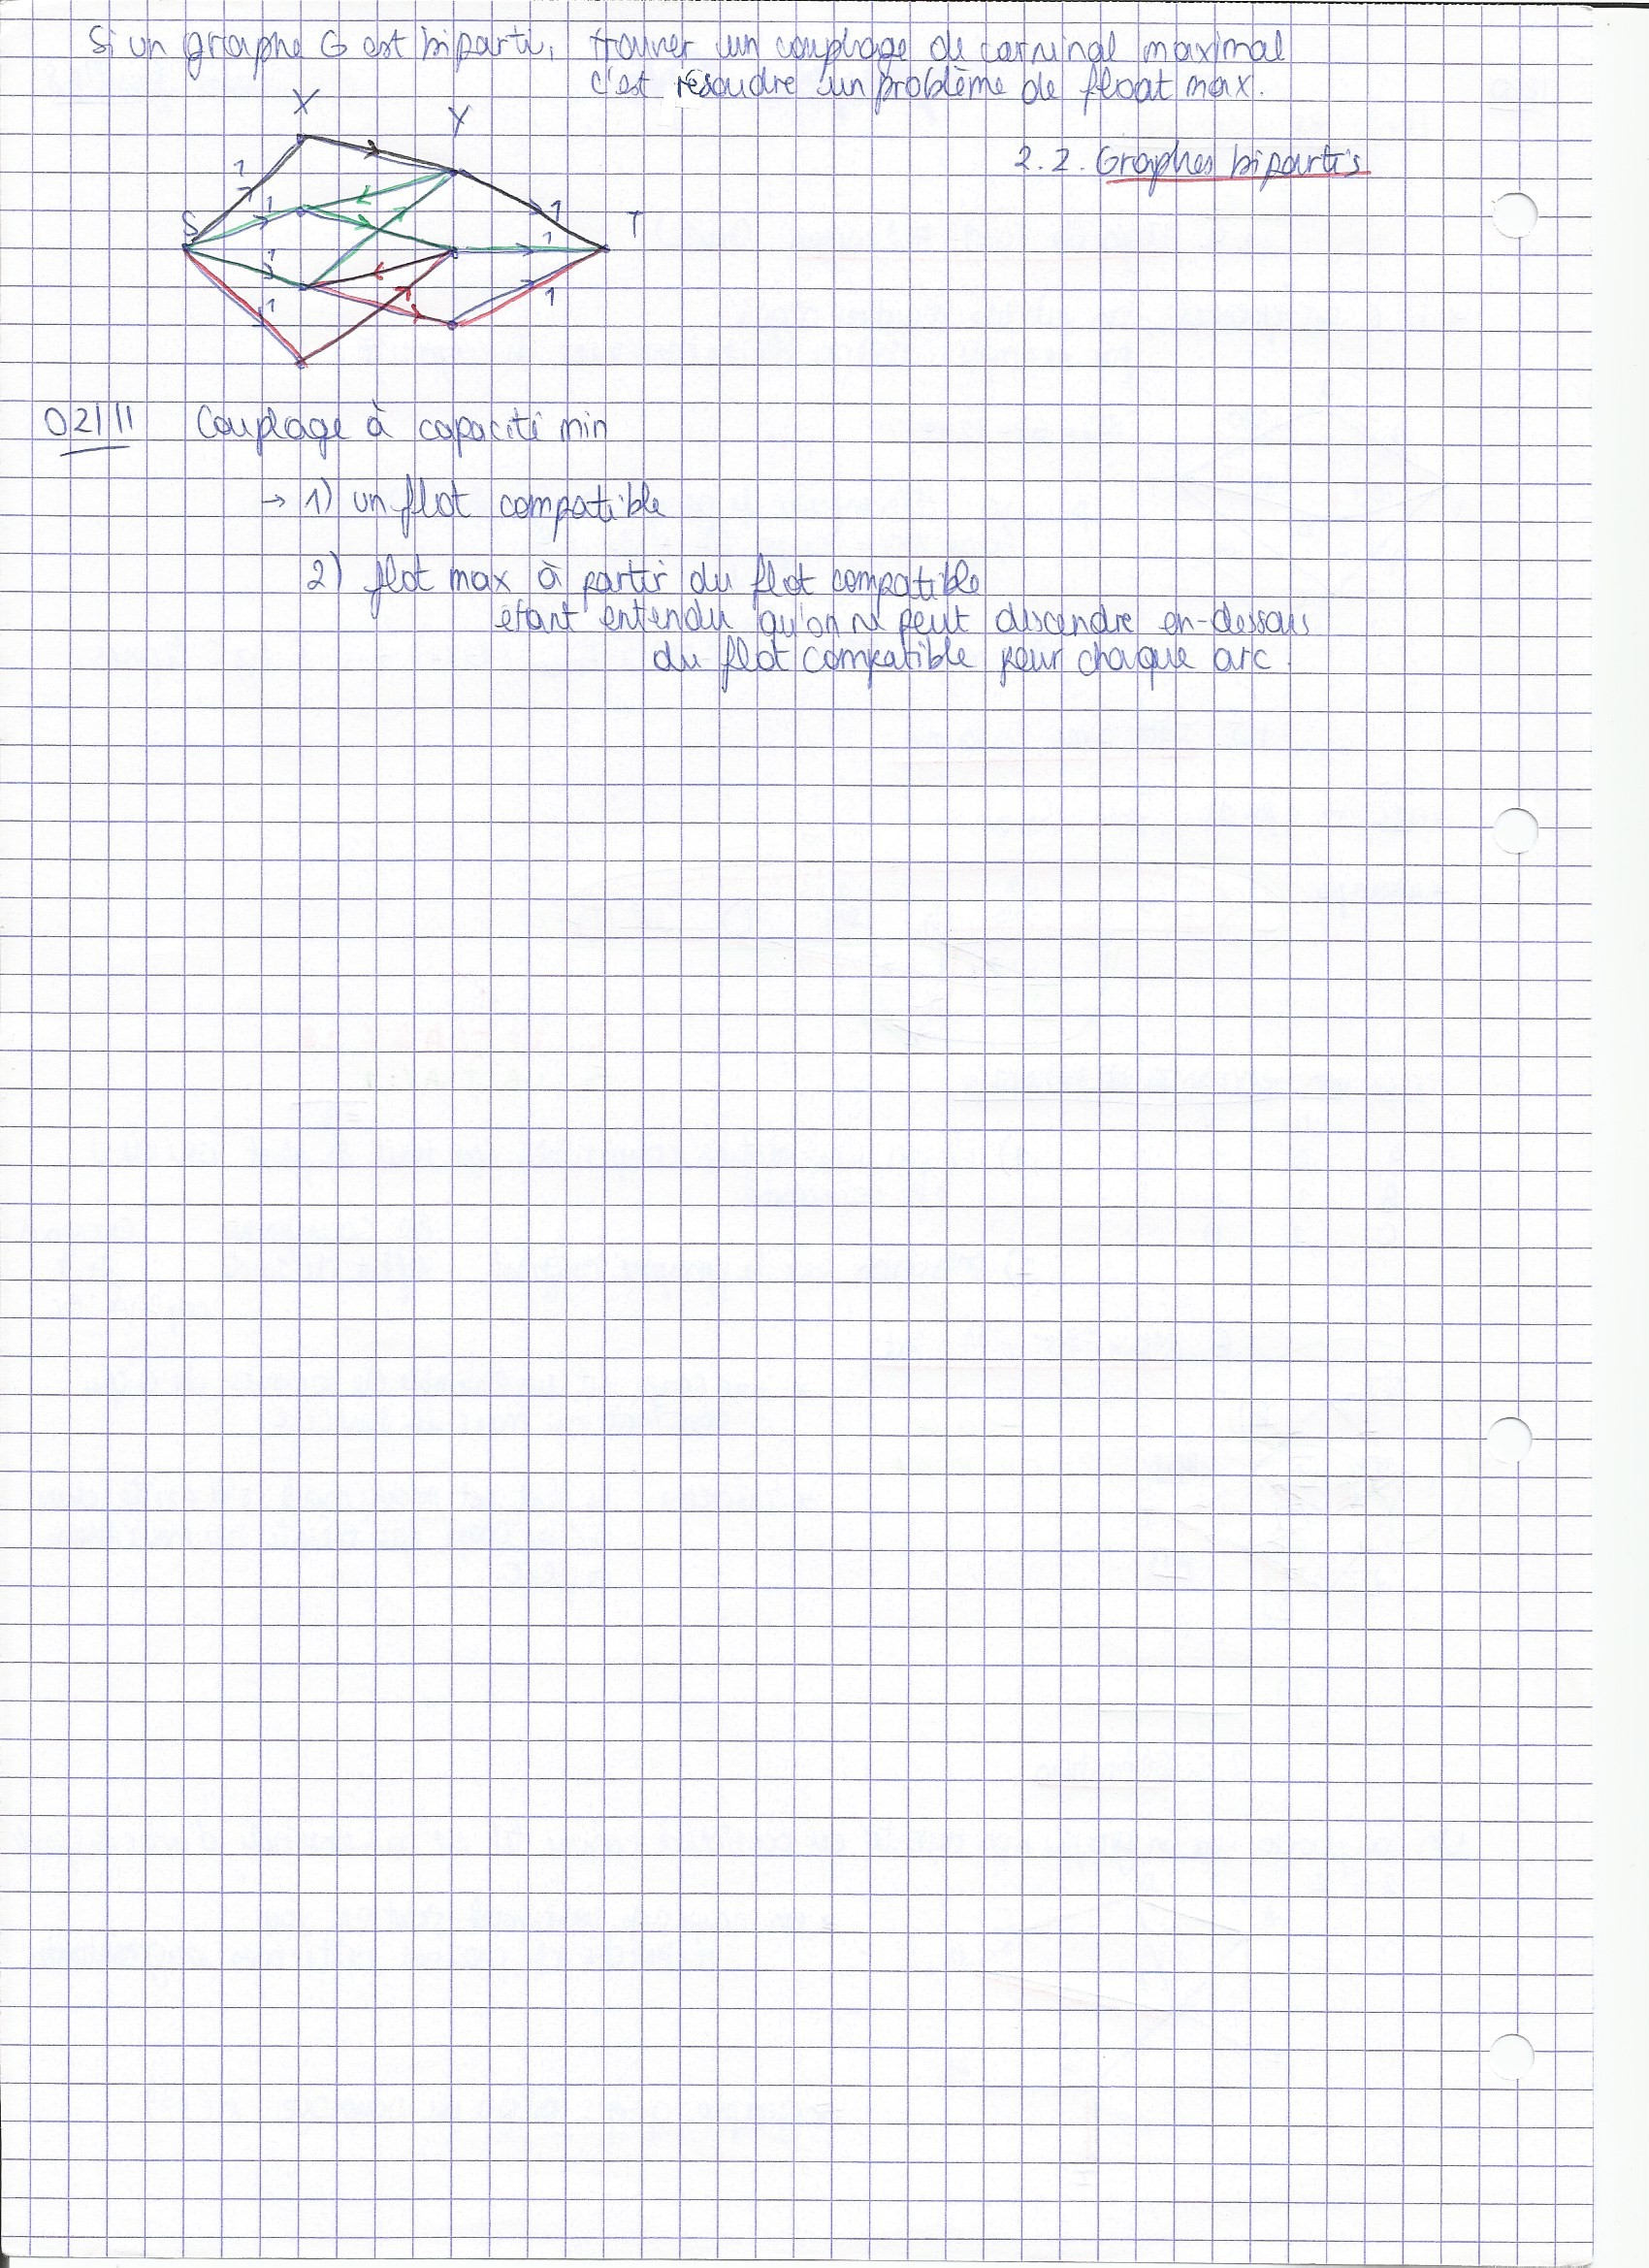 Si un graphe G est biparti, trouver un couplage de carninal maximal
c'est résoudre un problème de float max.
2.2. Graphes bipartis
X
Y
S
T
1
1
1
1
1
1
1
02/11 Couplage à capacité min
→ 1) un flot compatible
2) flot max à partir du flot compatible
étant entendu qu'on ne peut descendre en-dessous
du flot compatible pour chaque arc.